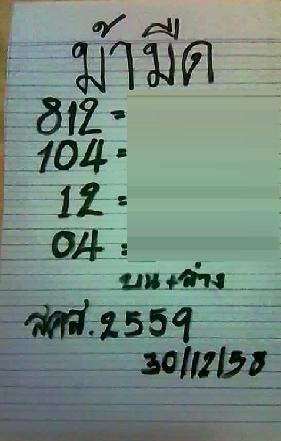 ม้ามืด
812 =
104 =
12 =
04 =
บน + ล่าง
สคส. 2559
30/12/58